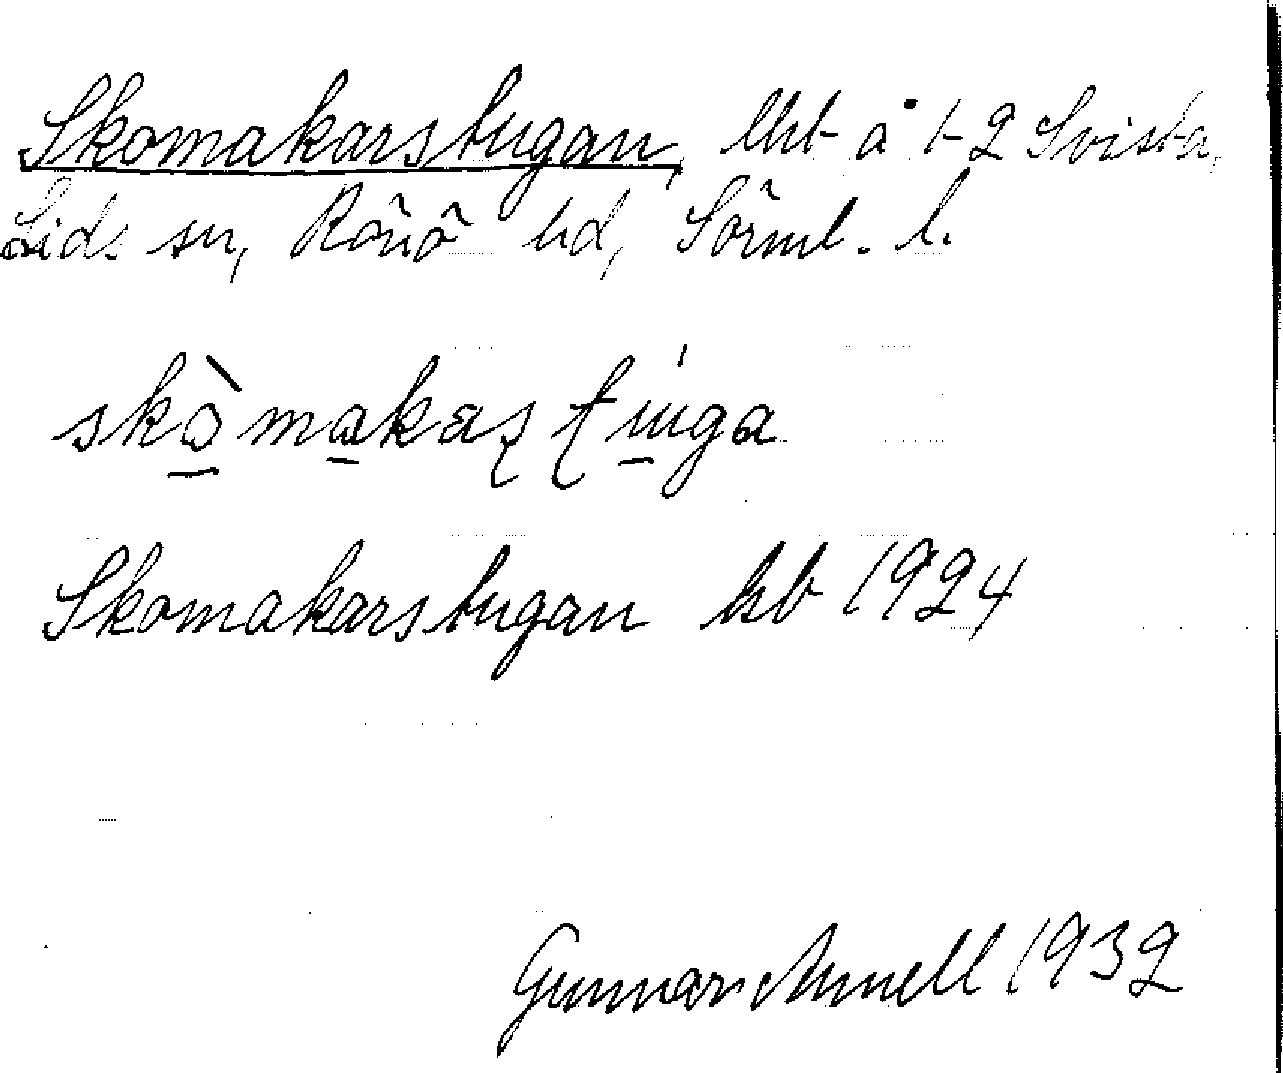 Skomakarstugan, lht å 1-2 Svista,
Lids sn, Rönö hd, Sörml. l.
skòmakaʂʈuga
Skomakarstugan kb 1924
Gunnar Annell 1932